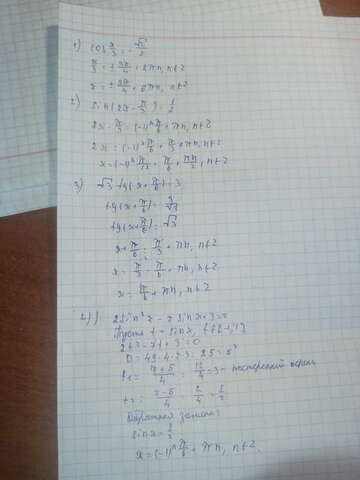 1) cos x/3 = -√2/2
x/3 = ± 3π/4 + 2πn, n∈Z
x = ± 9π/4 + 6πn, n∈Z
2) sin(2x - π/3) = 1/2
2x - π/3 = (-1)ⁿ π/6 + πn, n∈Z
2x = (-1)ⁿ π/6 + π/3 + πn, n∈Z
x = (-1)ⁿ π/12 + π/6 + πn/2, n∈Z
3) √3 tg(x + π/6) = 3
tg(x + π/6) = 3/√3
tg(x + π/6) = √3
x + π/6 = π/3 + πn, n∈Z
x = π/3 - π/6 + πn, n∈Z
x = π/6 + πn, n∈Z
4) 2sin²x - 7sinx + 3 = 0
Пусть t = sinx, t∈[-1;1]
2t² - 7t + 3 = 0
D = 49 - 4·2·3 = 25 = 5²
t₁ = (7+5)/4 = 12/4 = 3 - посторонний корень
t₂ = (7-5)/4 = 2/4 = 1/2
Обратная замена:
sinx = 1/2
x = (-1)ⁿ π/6 + πn, n∈Z.